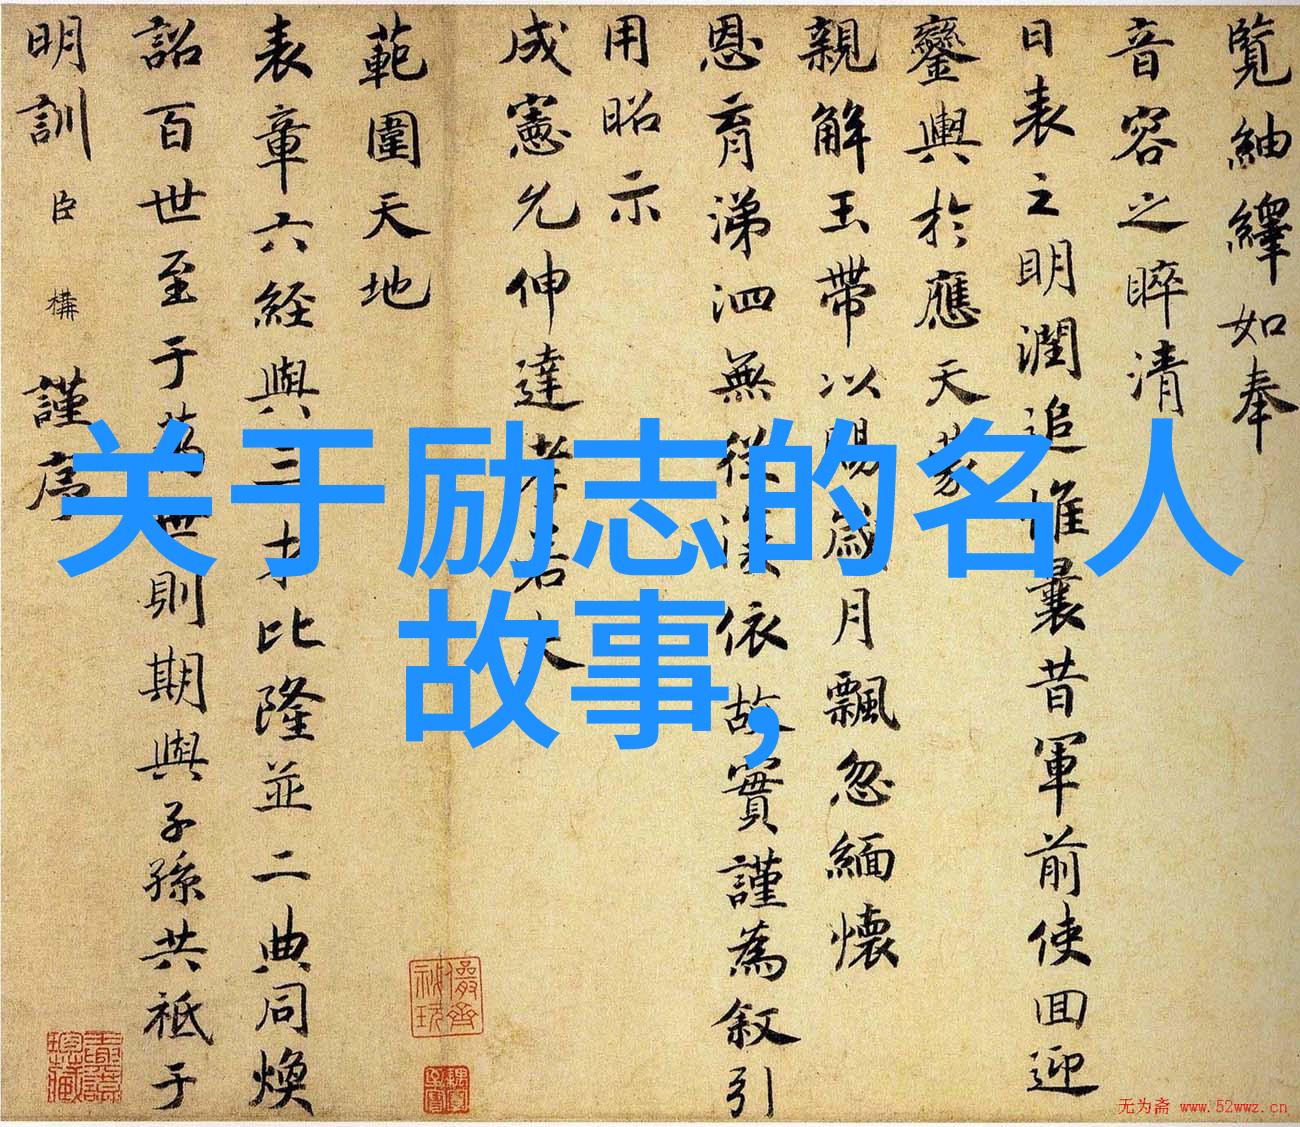 覽紬繹如奉
音容之睟清
日表之明潤追惟曩昔軍前使囬迎
鑾輿於應天蒙
親解玉帶以賜歲月飄忽緬懷
恩育涕泗無從依故實謹為叙引
用昭示
成憲允伸達孝若夫
範圍天地
表章六経與三才比隆並二典同煥
詔百世至于萬世則期與子孫共祗于
明訓臣構謹序
关于励志的名人
故事,
无为斋 www.52wwz.cn